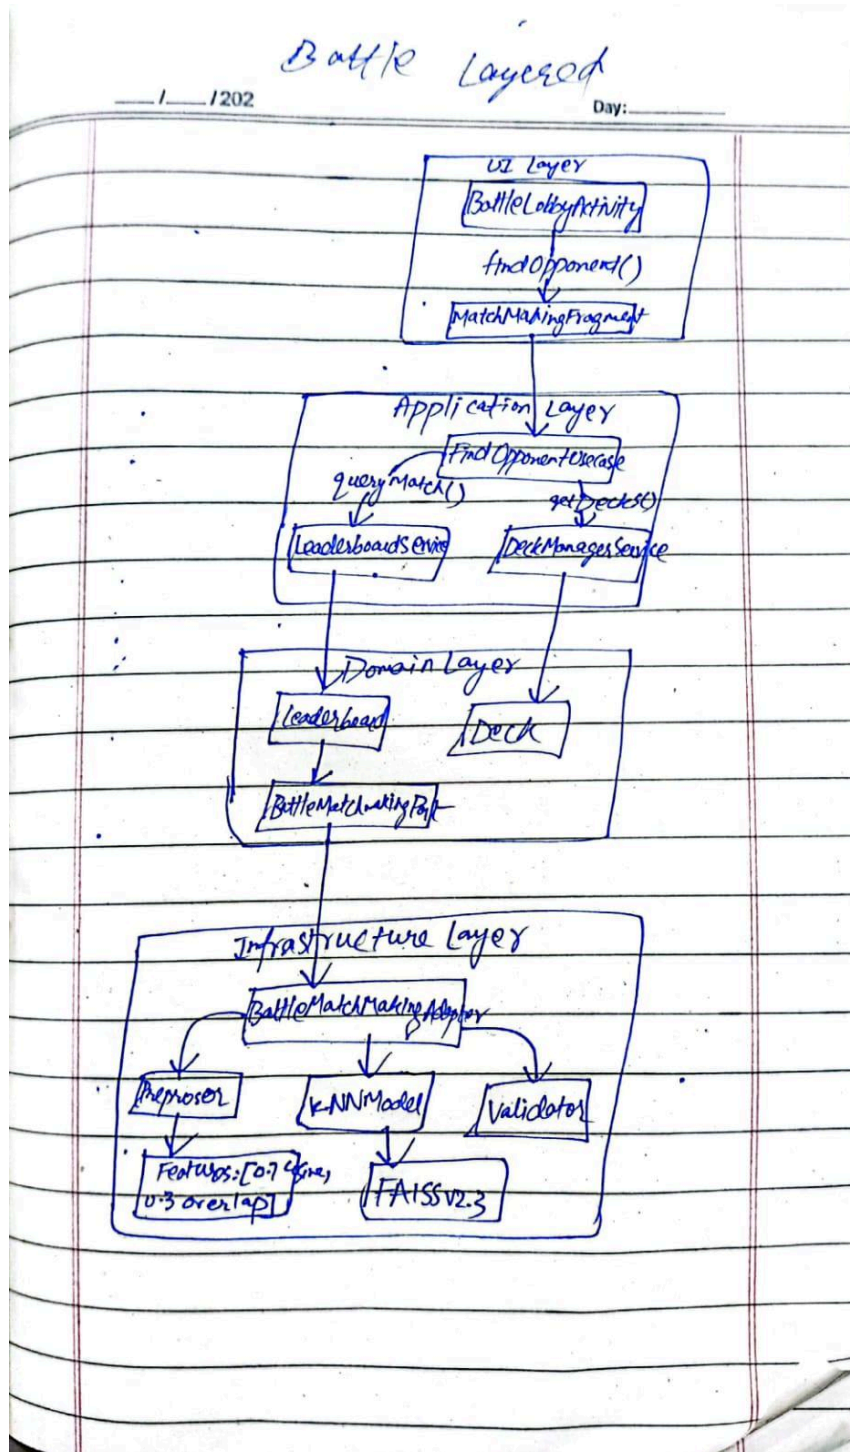 Battle Layered
___/___/202
Day:________
UI Layer
BattleLobbyActivity
findOpponent()
MatchMakingFragment
Application Layer
FindOpponentUsecase
queryMatch()
getDecks()
LeaderboardService
DeckManagerService
Domain Layer
Leaderboard
Deck
BattleMatchmakingPort
Infrastructure Layer
BattleMatchMakingAdapter
Preproser
KNNModel
Validator
Features:[0.7
0.3 overlap]
FAISSv2.3